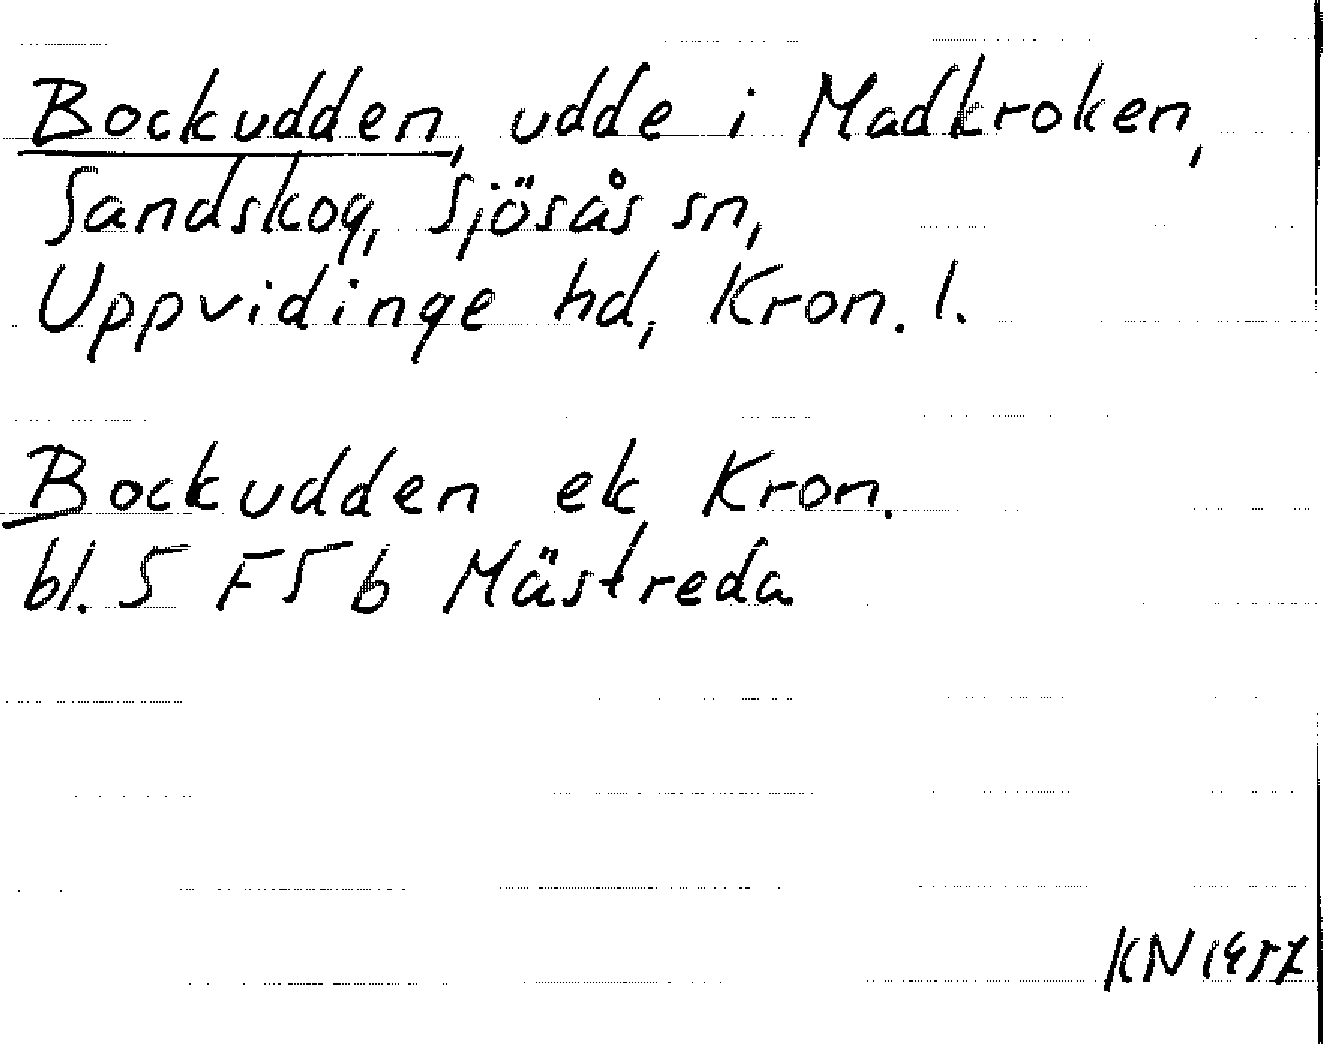 Bockudden, udde i Madkroken,
Sandskog, Sjösås sn,
Uppvidinge hd, Kron. l.
Bockudden ek Kron.
bl. 5 F5 b Mästreda
KN 1957